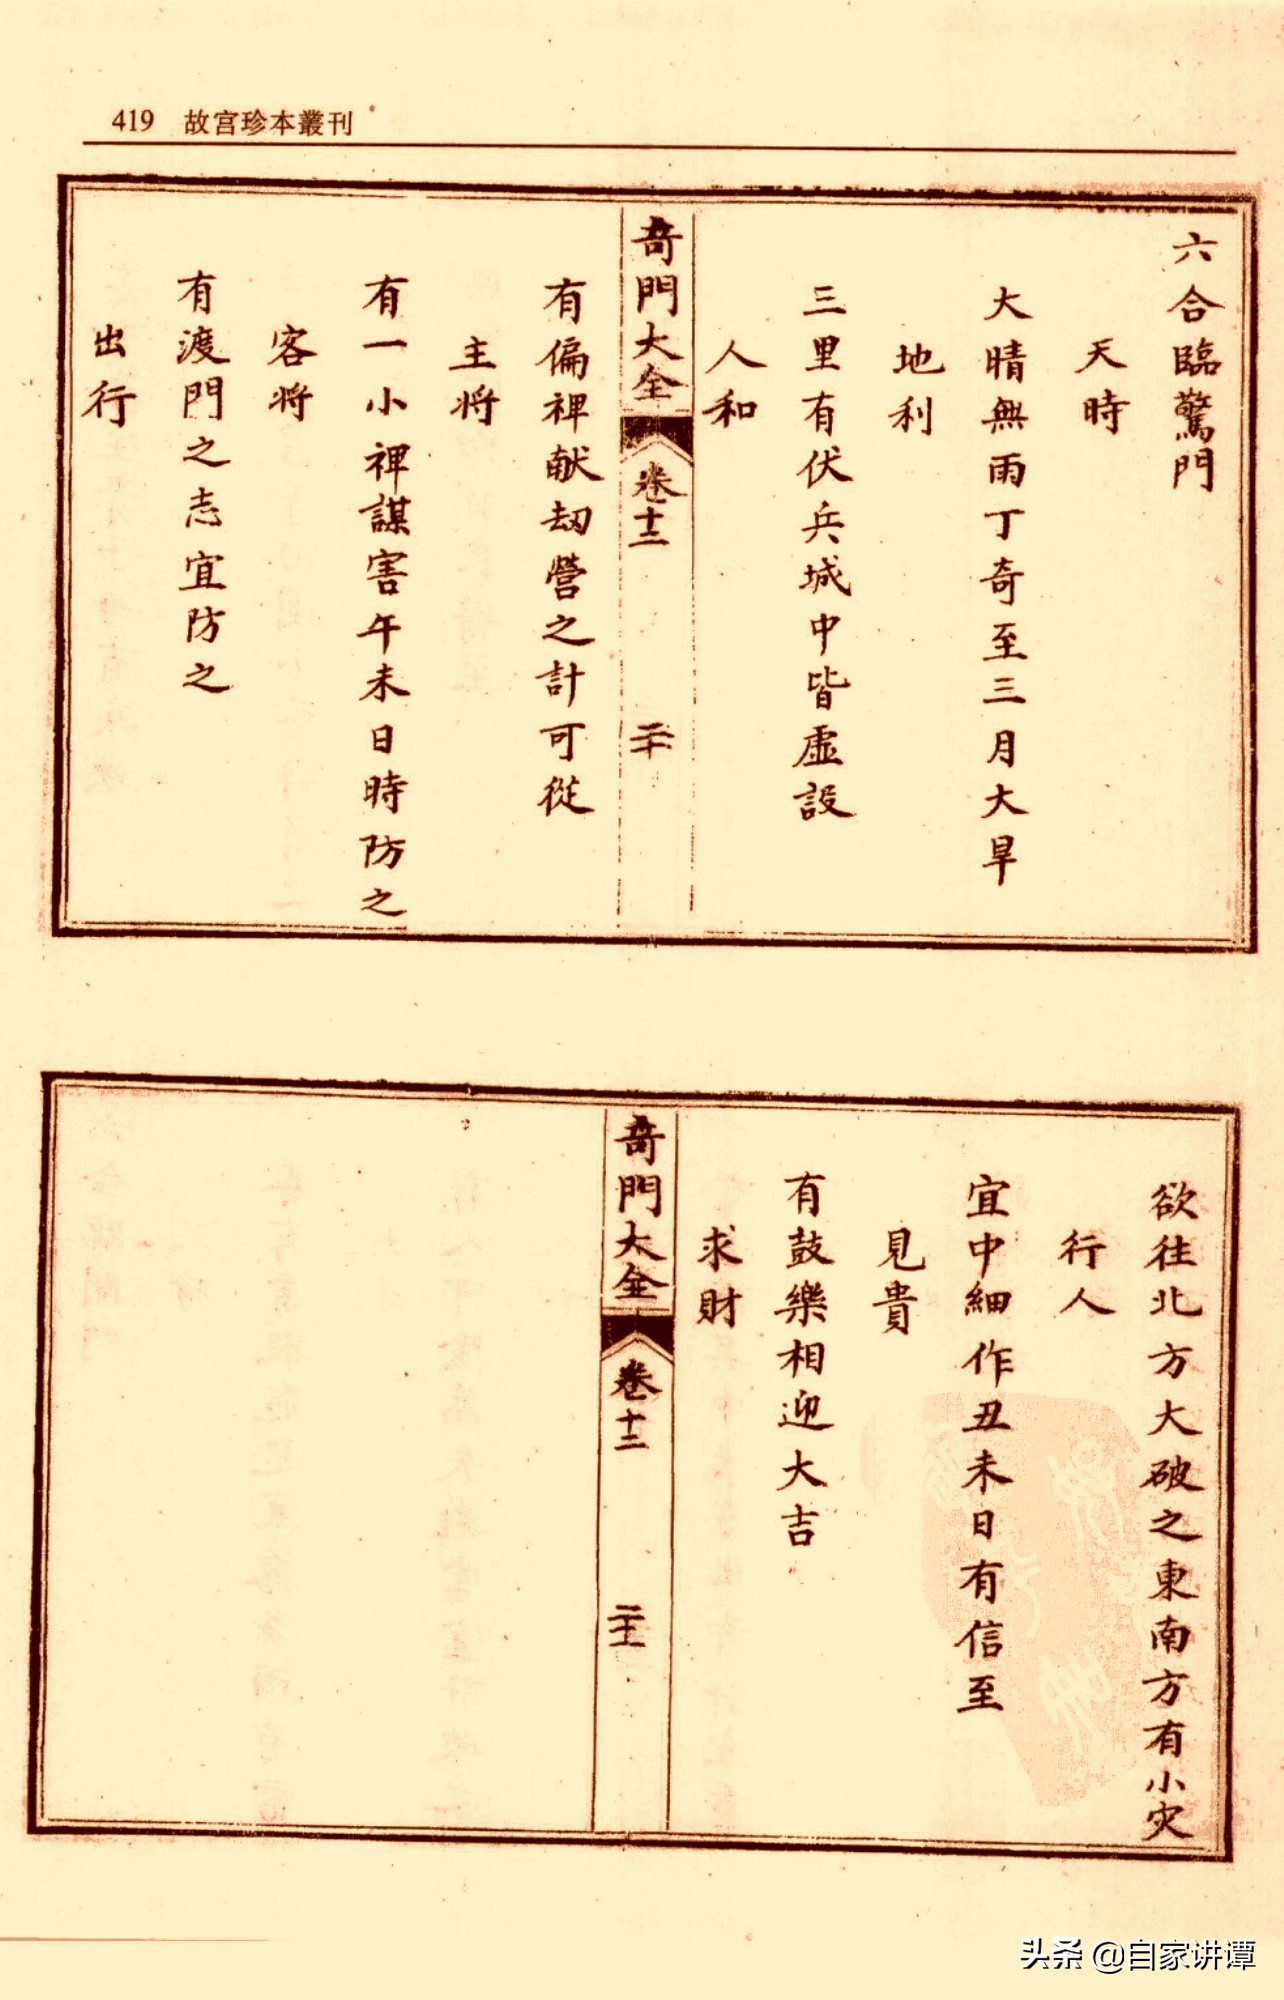 419 故宫珍本叢刊
六合臨驚門
天時
大晴無雨丁奇至三月大旱
地利
三里有伏兵城中皆虛設
人和
奇門大全 卷十二 二十
有偏裨献刼營之計可從
主將
有一小裨謀害午未日時防之
客將
有渡門之志宜防之
出行
欲往北方大破之東南方有小灾
行人
宜中細作丑未日有信至
見貴
有鼓樂相迎大吉
求財
奇門大全 卷十二 二十一
头条 @自家讲谭